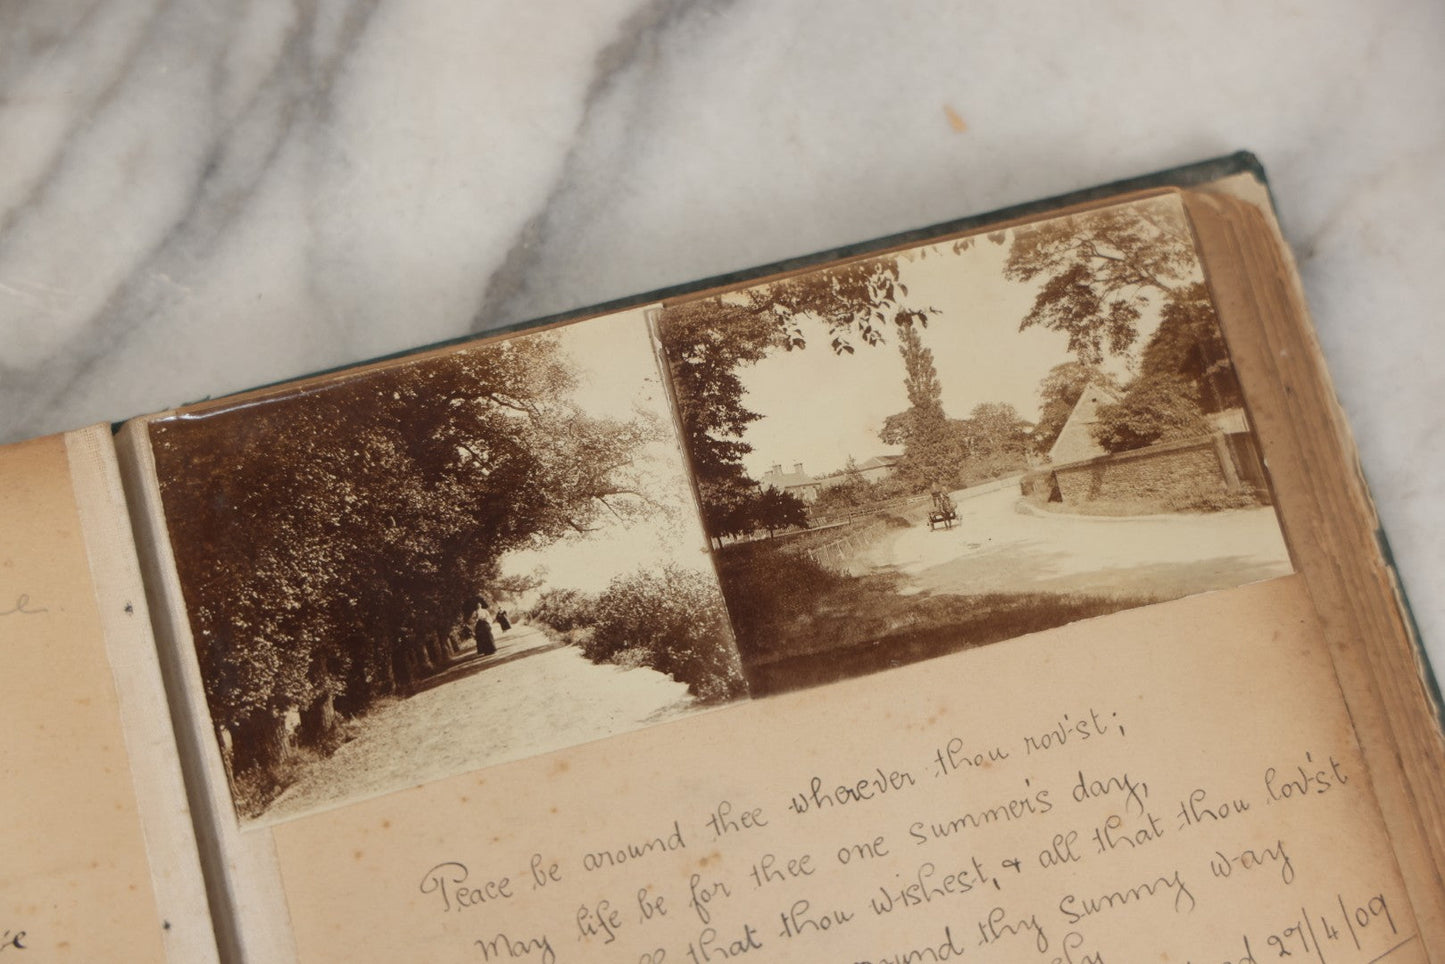 Peace be around thee wherever thou rov'st;
May life be for thee one summer's day,
all that thou wishest, & all that thou lov'st
round thy sunny way
27/4/09